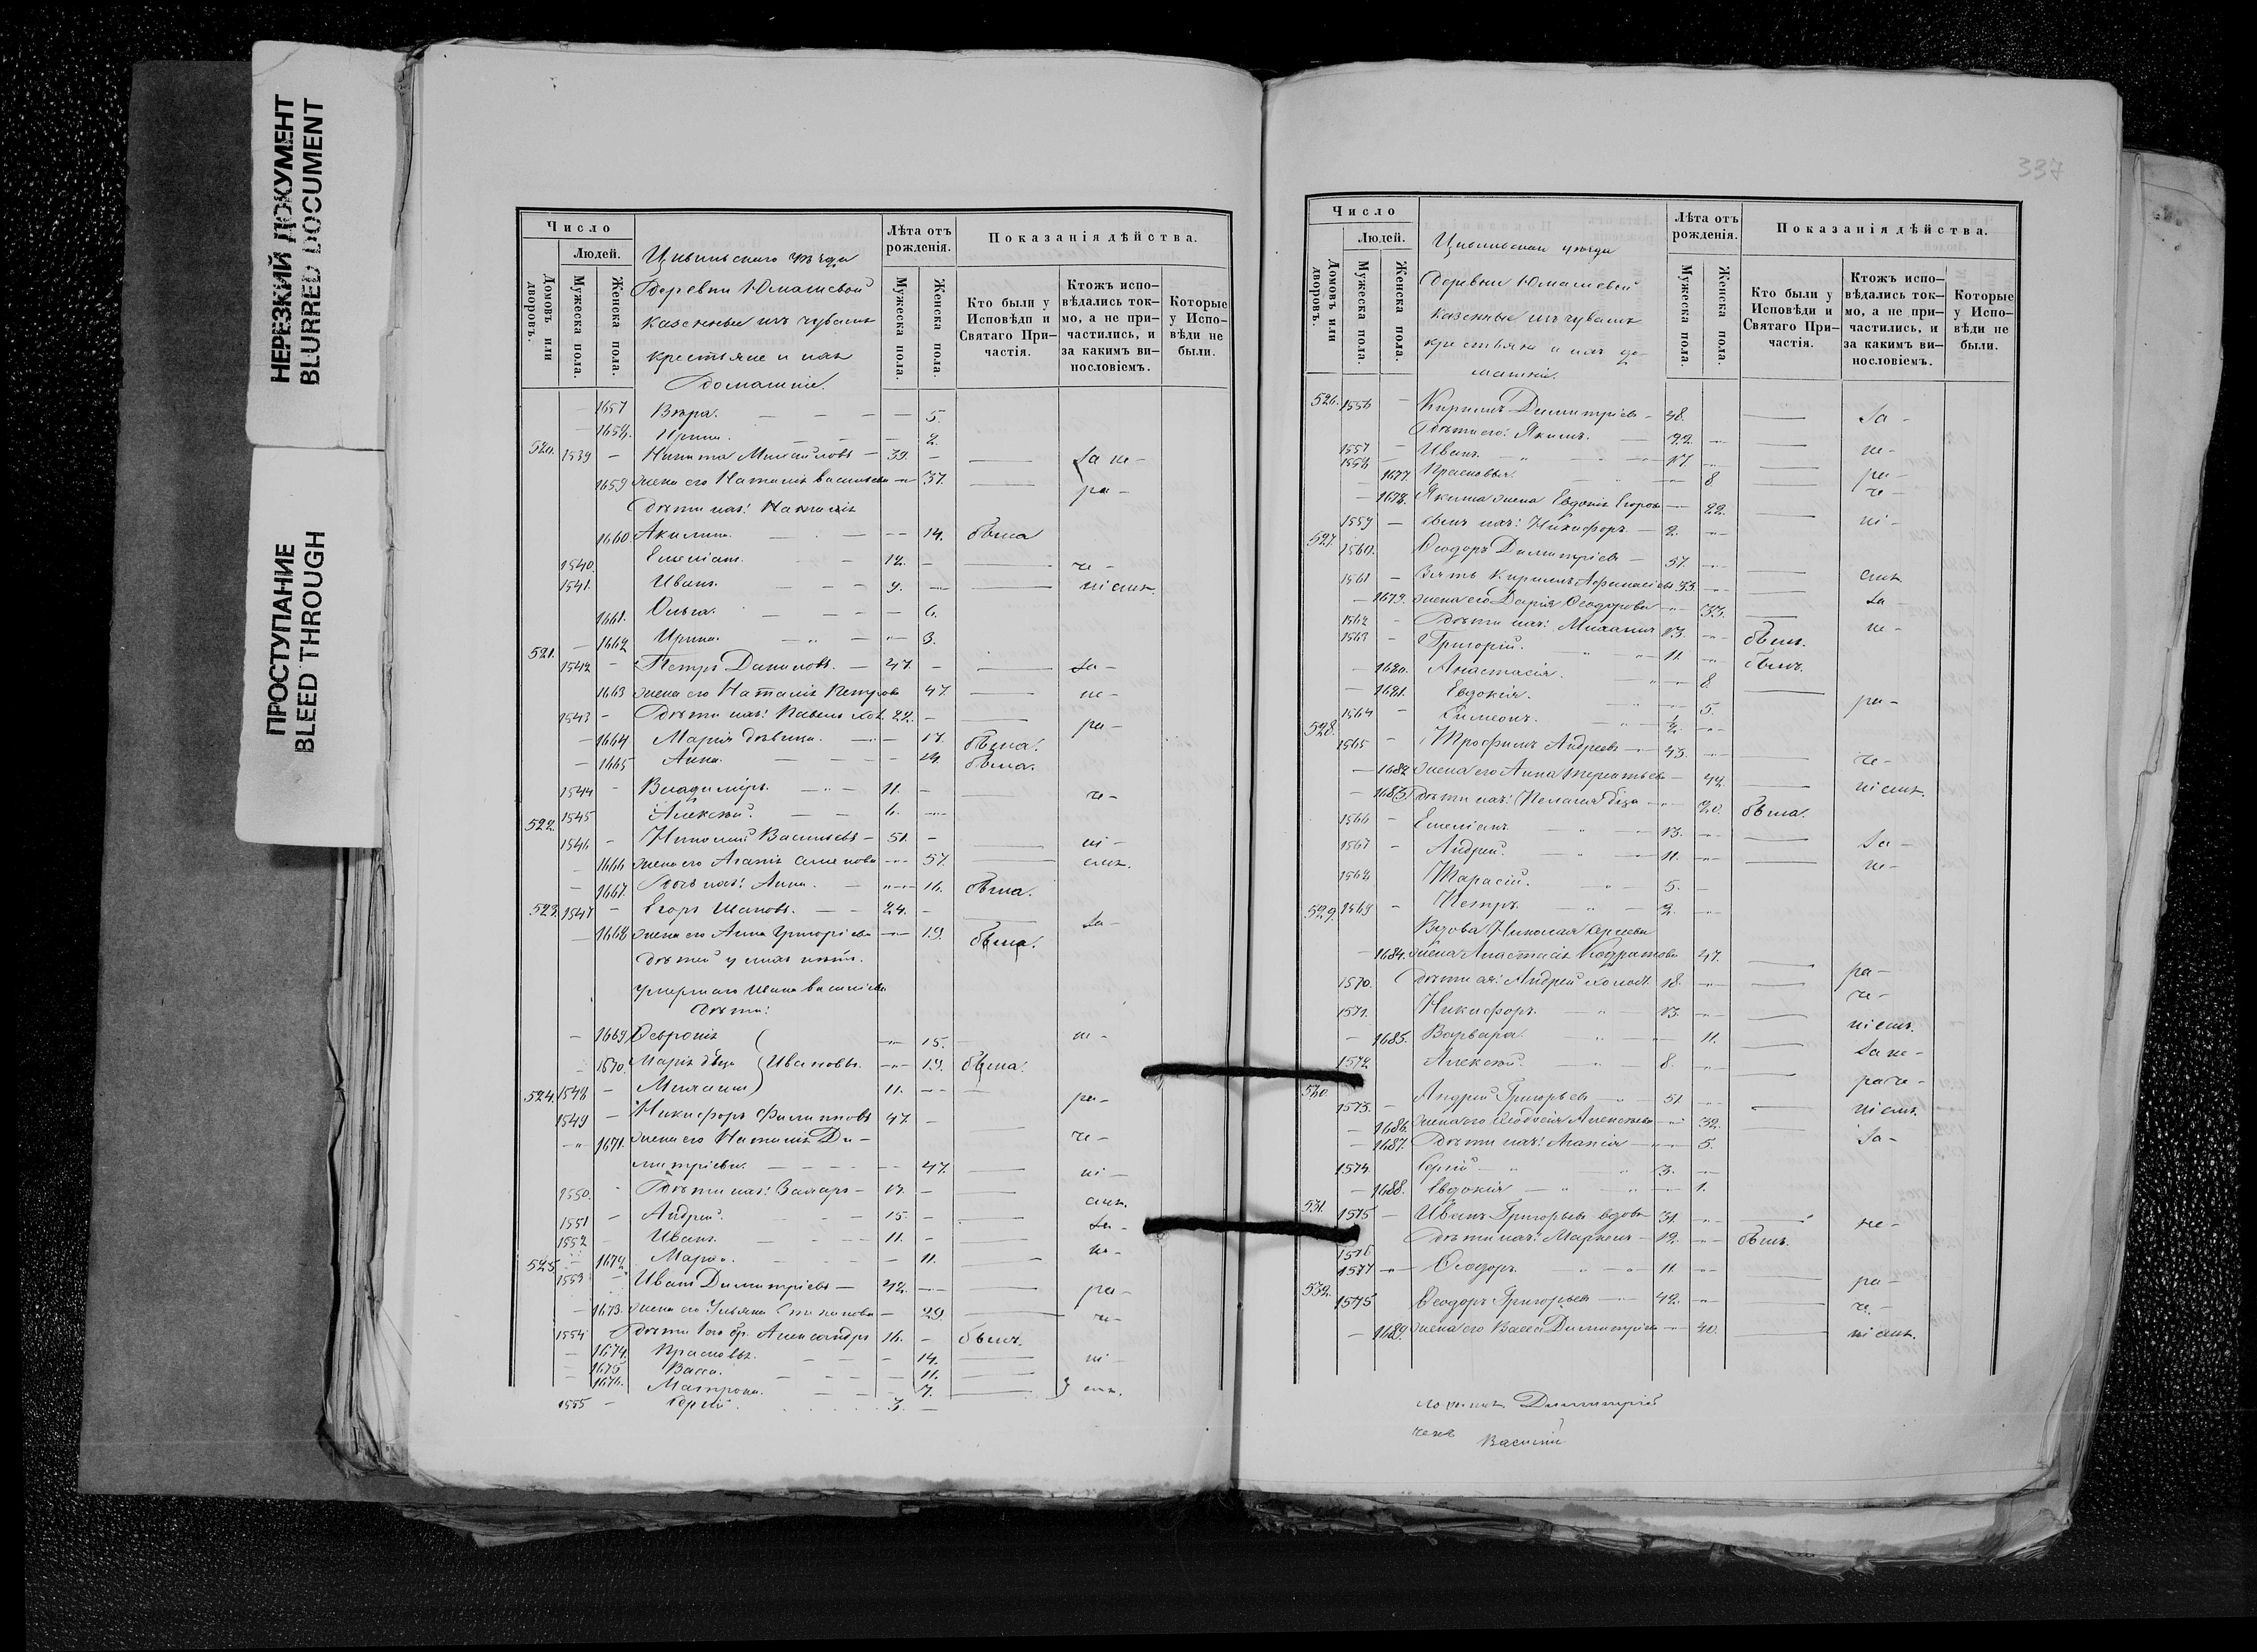 НЕРЕЗКИЙ ДОКУМЕНТ
BLURRED DOCUMENT
ПРОСТУПАНИЕ
BLEED THROUGH
Число
Людей.
Домовъ или дворовъ.
Мужеска пола.
Женска пола.
Цивильскаго уѣзда
деревни Юмашевой
казенные изъ чувашъ
крестьяне и ихъ
домашніе.
Лѣта отъ рожденія.
Мужеска пола.
Женска пола.
Показанія дѣйства.
Кто были у Исповѣди и Святаго Причастія.
Ктожъ исповѣдались токмо, а не причастились, и за какимъ винословіемъ.
Которые у Исповѣди не были.
1657 Вѣра. 5.
1658. Ирина. 2.
520. 1539 Никита Михайловъ 39. За не-
1659 жена его Наталія Васильева 37. ра-
Дѣти ихъ: Наталія
1660 Акилина. 14. была
1540. Емеліанъ. 12. че-
1541. Иванъ. 9. ніемъ.
1661. Ольга. 6.
1662 Ирина. 3.
521. 1542 Петръ Даниловъ. 47. За-
1663 жена его Наталія Петрова 47. не-
1543 Дѣти ихъ: Павелъ хол. 22. ра-
1664 Марія дѣвица. 17. была.
1665 Анна. 14. была.
1544 Владиміръ. 11. че-
1545 Алексѣй. 6.
522. 1546 Николай Васильевъ 51. ні-
1666 жена его Агапія Семенова 57. емъ.
1667. Дочь ихъ: Анна. 16. была.
523. 1547 Егоръ Ивановъ. 24. За-
1668 жена его Анна Григорьева 19. была.
дѣтей у нихъ нѣтъ.
умершаго Ивана Васильева
дѣти:
1669 Февронія 15. не-
1670. Марія дѣвца Ивановы. 19. была.
1548 Михаилъ 11. ра-
524. 1549 Никифоръ Филипповъ 47.
1671. жена его Наталія Ди- че-
митріева. 47. ні-
1550. Дѣти ихъ: Захаръ 17. емъ.
1551 Андрей. 15. За-
1552 Иванъ. 11. не-
1672. Марѳа. 11.
525. 1553 Иванъ Димитріевъ 42. ра-
1673. жена его Ульяна Степанова 29. че-
1554 Дѣти 1го бр. Александръ 16. былъ.
1674. Прасковья. 14. ні-
1675 Васса. 11.
1676. Матрона. 7. емъ.
1555 Сергій. 3.
337
Число
Людей.
Домовъ или дворовъ.
Мужеска пола.
Женска пола.
Цивильскаго уѣзда
деревни Юмашевой
казенные изъ чувашъ
крестьяне и ихъ до-
машніе.
Лѣта отъ рожденія.
Мужеска пола.
Женска пола.
Показанія дѣйства.
Кто были у Исповѣди и Святаго Причастія.
Ктожъ исповѣдались токмо, а не причастились, и за какимъ винословіемъ.
Которые у Исповѣди не были.
526. 1556 Кириллъ Димитріевъ 48. За-
Дѣти его: Якимъ. 22.
1557 Иванъ. 17. не-
1558
1677. Прасковья. 8 ра-
1678. Якима жена Евдокія Егорова 22. че-
1559 сынъ ихъ: Никифоръ 2. ні-
527. 1560. Ѳеодоръ Димитріевъ 57. емъ
1561 Зять Кириллъ Афанасіевъ 33. За-
1679. жена его Дарія Ѳеодорова 33. не-
1562 Дѣти ихъ: Михаилъ 13. былъ.
1563 Григорій. 11. былъ.
1680. Анастасія. 8.
1681. Евдокія. 5. ра-
1564 Симеонъ. ½.
528. 1565 Трофимъ Андреевъ 43. че-
1682 жена его Анна Терентьева 42. ніемъ.
1683 Дѣти ихъ: Пелагія дѣвца 20. была.
1566 Емеліанъ 13. За-
1567 Андрей. 11. не-
1568 Тарасій. 5.
1569 Петръ 2.
529. Вдова Николая Сергеева
1684. жена Анастасія Кодратова 47. ра-
1570. дѣти ея: Андрей холост. 18. че-
1571. Никифоръ. 13. ніемъ.
1685. Варвара. 11. За не-
1572 Алексѣй. 8. раче-
530. 1573. Андрей Григорьевъ 51 ніемъ.
1686. жена его Ѳеодосія Алексѣева 32. За-
1687. Дѣти ихъ: Агапія 5.
1574. Сергій 3.
1688. Евдокія 1.
531. 1575 Иванъ Григорьевъ вдовъ 31. не-
1576 Дѣти ихъ: Маркелъ 12. былъ.
1577 Ѳеодоръ. 11.
532. 1575 Ѳеодоръ Григорьевъ 42. ра- че-
1689 жена его Васса Димитріева 40. ніемъ.
Димитрій
Василій